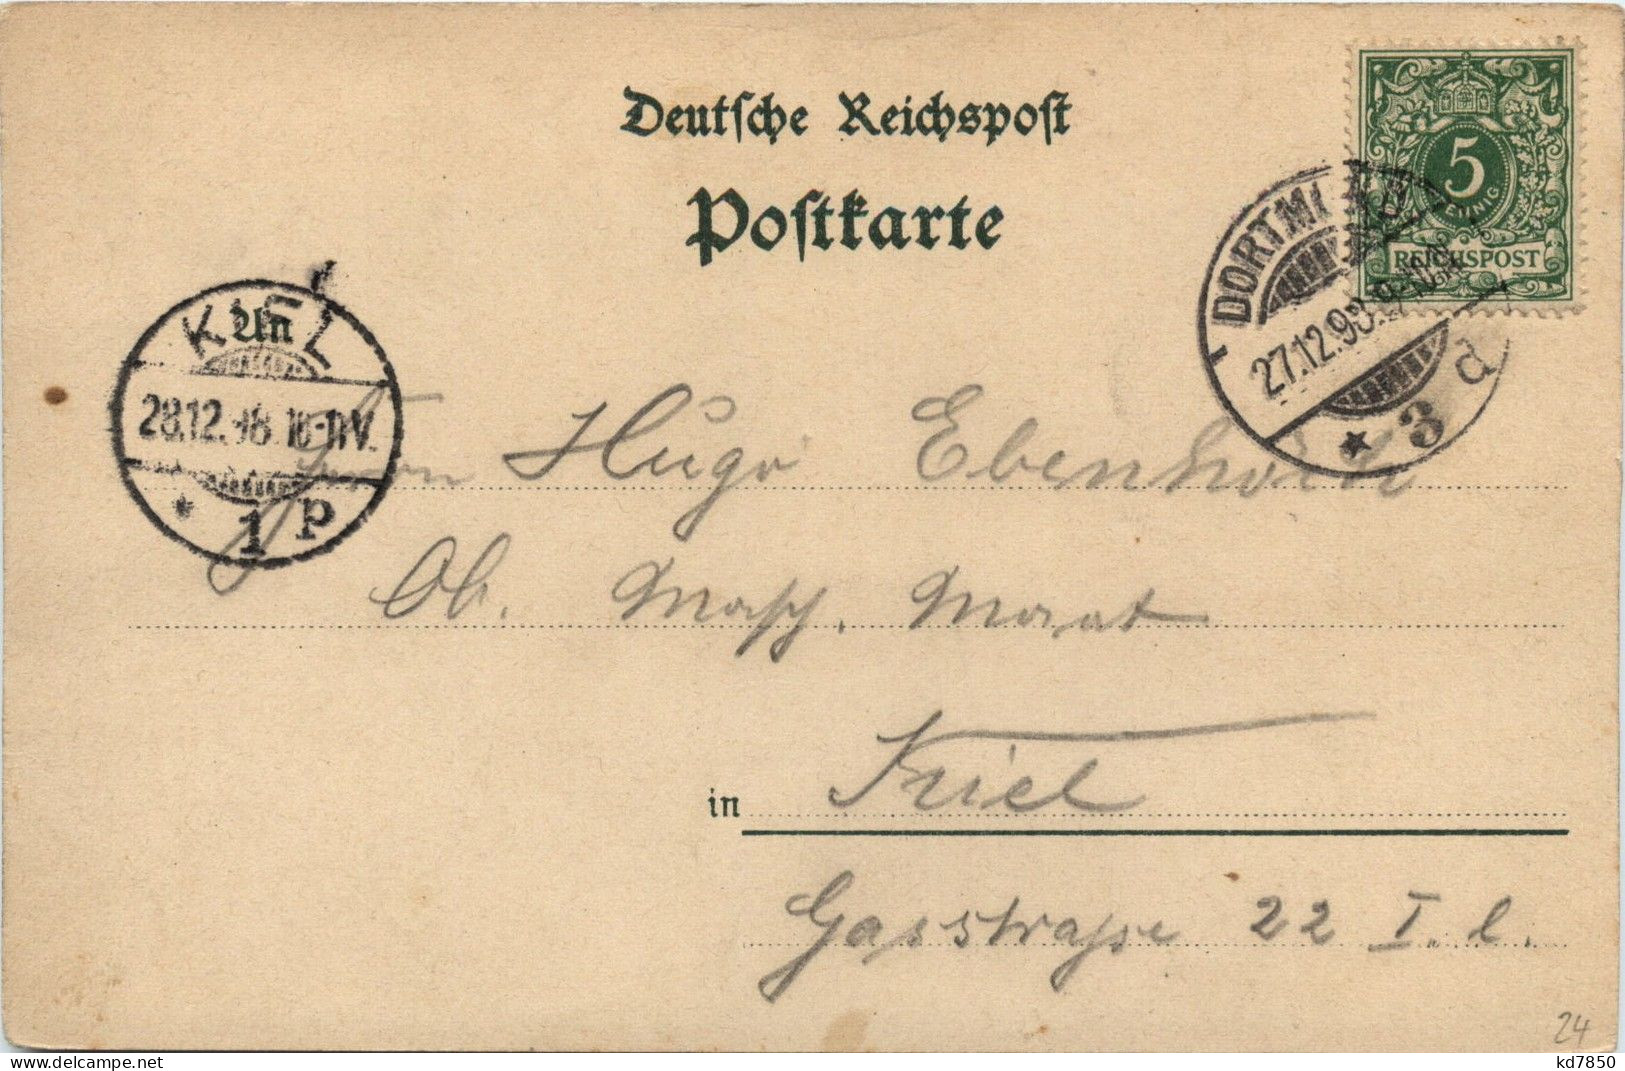 Deutsche Reichspost
Postkarte
5
PFENNIG
REICHSPOST
DORTMUND
27.12.98. 9-10
* 3 d
KIEL
28.12.98. 10-11V.
* 1 p
An
Herrn Hugo
Ob. Masch. Maat
in Kiel
Gasstraße 22 I. l.
24
kd7850